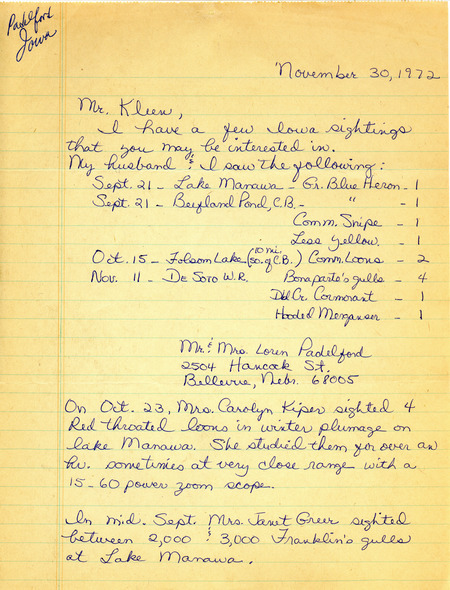 Padelford
Iowa
November 30, 1972
Mr. Kleen,
I have a few Iowa sightings
that you may be interested in.
My husband & I saw the following:
Sept. 21 - Lake Manawa - Gr. Blue Heron - 1
Sept. 21 - Pond, C.B. - " - 1
Comm. Snipe - 1
Less Yellow. - 1
Oct. 15 - Folsom Lake (10 mi. so. of C.B.) Comm. Loons - 2
Nov. 11 - De Soto W.R. Bonaparte's gulls - 4
Dbl Cr. Cormorant - 1
Hooded Merganser - 1
Mr. & Mrs. Loren Padelford
2504 Hancock St.
Bellevue, Nebr. 68005
On Oct. 23, Mrs. Carolyn Kiper sighted 4
Red throated loons in winter plumage on
lake Manawa. She studied them for over an
hr. sometimes at very close range with a
15-60 power zoom scope.
In mid. Sept. & Mrs. Janet Greer sighted
between 2,000 & 3,000 Franklin's gulls
at Lake Manawa.